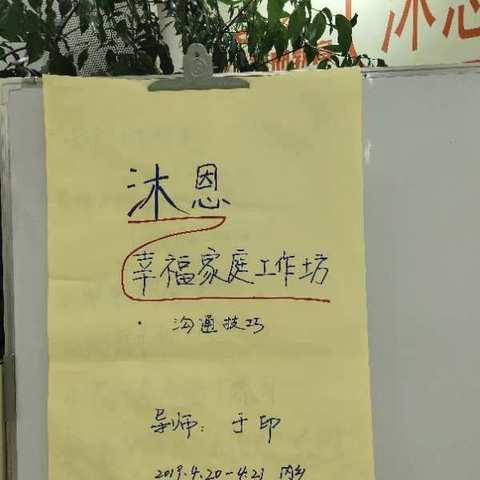 沐恩
沐恩
幸福家庭工作坊
· 沟通技巧
导师: 于印
2019.4.20-4.21 内乡